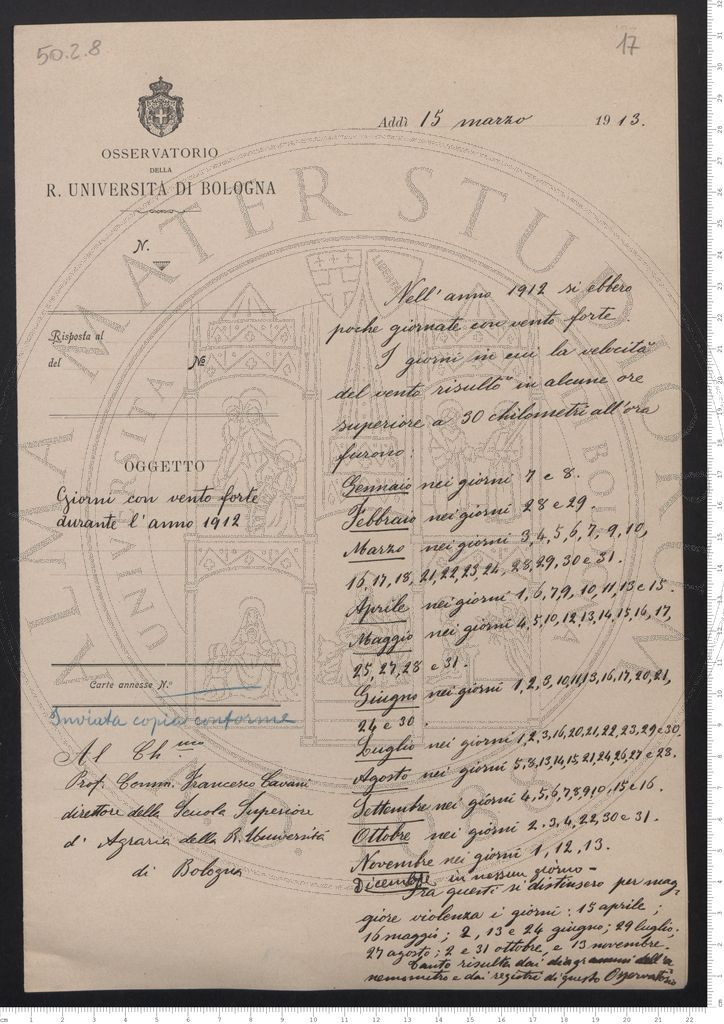 50.2.8
17
OSSERVATORIO
DELLA
R. UNIVERSITÀ DI BOLOGNA
N.
Risposta al
del No
OGGETTO
Giorni con vento forte
durante l'anno 1912
Carte annesse N.o
Inviata copia conforme
Al Ch.mo
Prof. Comm. Francesco Cavani
direttore della Scuola Superiore
d'Agraria della R. Università
di Bologna
Addì 15 marzo 1913.
Nell'anno 1912 si ebbero
poche giornate con vento forte.
I giorni in cui la velocità
del vento risultò in alcune ore
superiore a 30 chilometri all'ora
furono:
Gennaio nei giorni 7 e 8.
Febbraio nei giorni 28 e 29.
Marzo nei giorni 3, 4, 5, 6, 7, 9, 10,
16, 17, 18, 21, 22, 23, 24, 28, 29, 30 e 31.
Aprile nei giorni 1, 6, 7, 9, 10, 11, 13 e 15.
Maggio nei giorni 4, 5, 10, 12, 13, 14, 15, 16, 17,
25, 27, 28 e 31.
Giugno nei giorni 1, 2, 3, 10, 11, 13, 16, 17, 20, 21,
24 e 30.
Luglio nei giorni 1, 2, 3, 16, 20, 21, 22, 23, 29 e 30
Agosto nei giorni 5, 8, 13, 14, 15, 21, 24, 26, 27 e 28.
Settembre nei giorni 4, 5, 6, 7, 8, 9, 10, 15 e 16.
Ottobre nei giorni 2, 3, 4, 22, 30 e 31.
Novembre nei giorni 1, 12, 13.
Dicembre in nessun giorno -
Fra questi si distinsero per mag=
giore violenza i giorni: 15 aprile;
16 maggio; 2, 13 e 24 giugno; 29 luglio;
27 agosto; 2 e 31 ottobre e 13 novembre.
Tanto risulta dai diagrammi dell'a
nemometro e dai registri di questo Osservatorio
ALMA MATER STUDIORUM
UNIVERSITÀ DI BOLOGNA
LIBERTAS